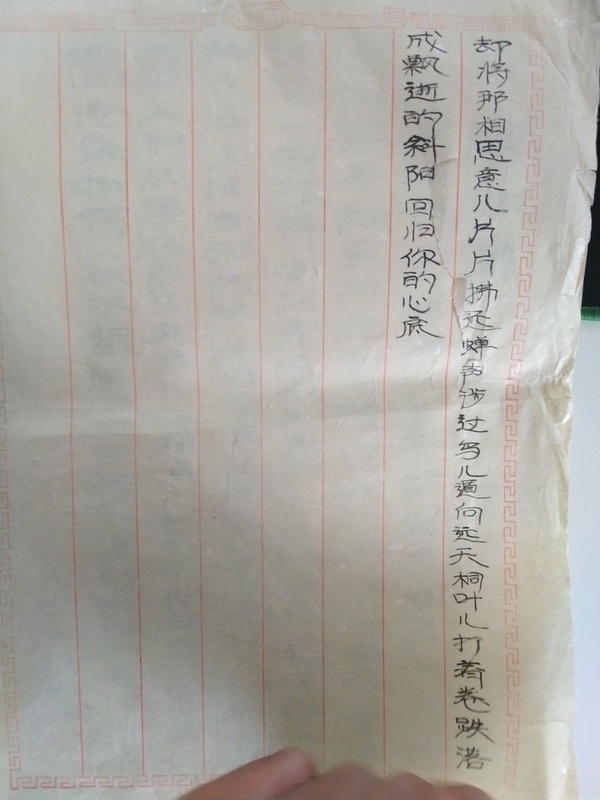 却将那相思意儿片片拂远蝉声涉过鸟儿遁向远天桐叶儿打着卷跌落
成飘逝的斜阳回归你的心底